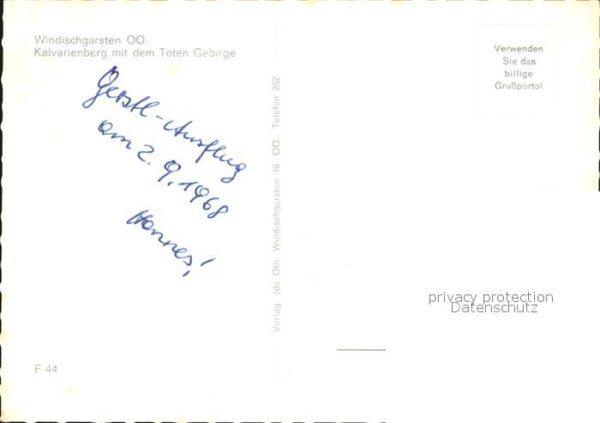 Windischgarsten OÖ.
Kalvarienberg mit dem Toten Gebirge
Verwenden
Sie das
billige
Grußporto!
Gerstl-Ausflug
am 2. 9. 1968
Hannes!
Verlag Ida Oth Windischgarsten 76 OÖ. Telefon 252
privacy protection
Datenschutz
F 44